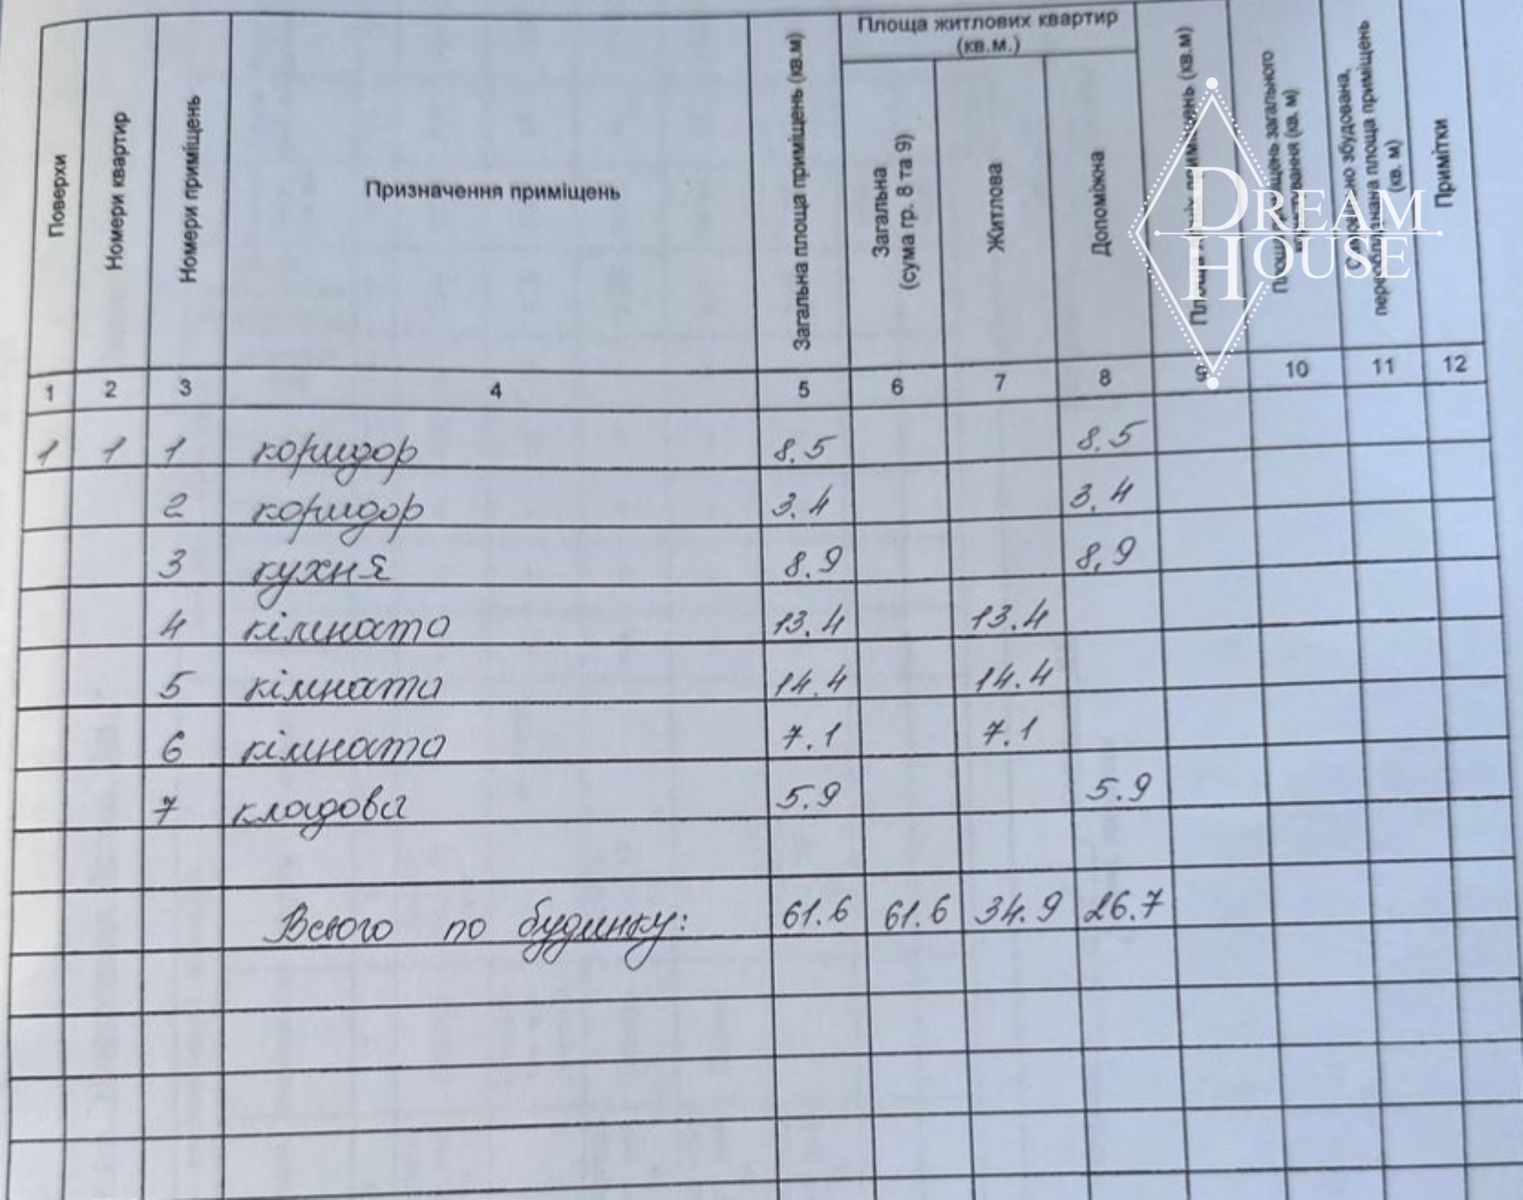 Поверхи
Номери квартир
Номери приміщень
Призначення приміщень
Загальна площа приміщень (кв.м)
Площа житлових квартир
(кв.м.)
Загальна
(сума гр. 8 та 9)
Житлова
Допоміжна
Площа (кв.м)
загального
(кв. м)
збудована,
площа приміщень
(кв. м)
Примітки
DREAM
HOUSE
1 2 3 4 5 6 7 8 9 10 11 12
1 1 1 коридор 8.5 8.5
2 коридор 3.4 3.4
3 кухня 8.9 8,9
4 кімната 13.4 13.4
5 кімната 14.4 14.4
6 кімната 7.1 7.1
7 кладова 5.9 5.9
Всього по будинку: 61.6 61.6 34.9 26.7